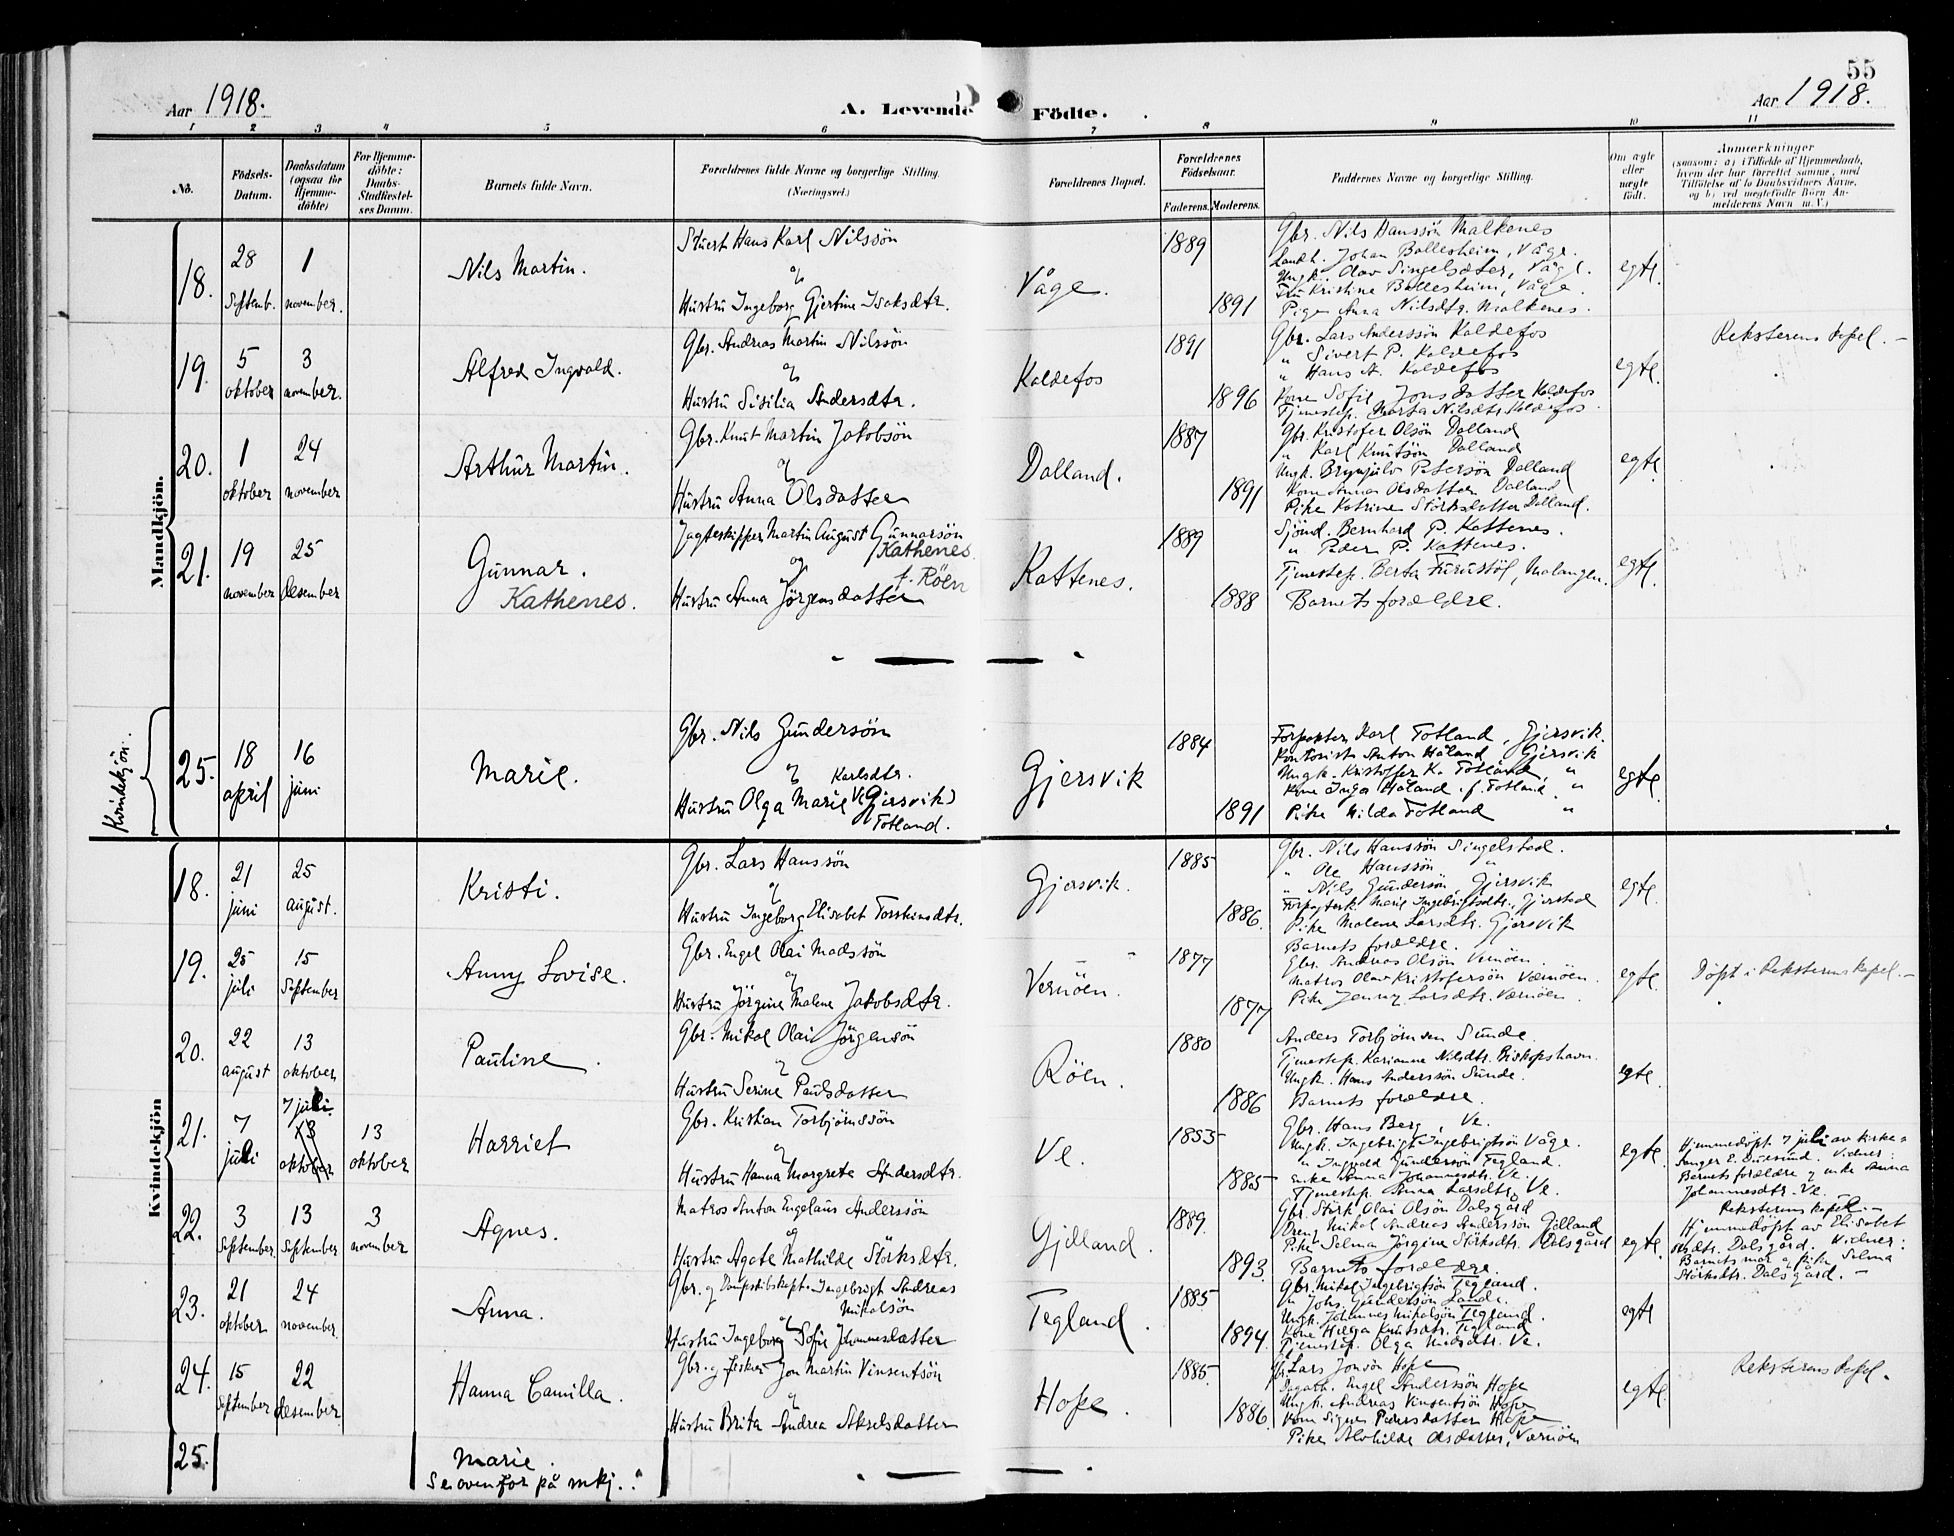 55
Aar 1918.
A. Levende Födte.
Aar 1918.
1 2 3 4 5 6 7 8 9 10 11
No.
Födsels-Datum.
Daabsdatum (ogsaa for Hjemme-döbte)
For Hjemme-döbte: Daabs-Stadfæstel-ses Datum.
Barnets fulde Navn.
Forældrenes fulde Navne og borgerlige Stilling. (Næringsvei.)
Forældrenes Bopæl.
Forældrenes Födselsaar.
Faderens. Moderens.
Faddernes Navne og borgerlige Stilling.
Om ægte eller uægte födt.
Anmærkninger
(saasom: a) i Tilfælde af Hjemmedaab, hvem der har forrettet samme, med Tilföielse af to Daabsvidners Navne, og b) ved uægtefödte Börn An-melderens Navn m.V.)
Mandkjön.
18. 28 Septemb. 1 november. Nils Martin.
Stuert Hans Karl Nilssön
og
Hustru Ingeborg Gjertine Isaksdtr.
Våge. 1889 1891
Gbr. Nils Hanssön Malkenes
Landh. Johan Bollesheim, Våge.
Ungk. Olav Singelsæter, Våge.
Fru Kristine Bollesheim, Våge.
Pige Anna Nilsdtr. Malkenes.
egte.
19. 5 oktober 3 november. Alfred Ingvald.
Gbr. Andreas Martin Nilssön
og
Hustru Sisilia Andersdtr.
Koldefos 1891 1896
Gbr. Lars Anderssön Koldefos
" Sivert P. Koldefos
" Hans A. Koldefos
Kone Sofie Jonsdatter Koldefos
Tjenestep. Marta Nilsdtr. Koldefos.
egte.
Reksterens kapel. -
20. 1 oktober 24 november Arthur Martin.
Gbr. Knut Martin Jakobsön
og
Hustru Anna Olsdatter
Dalland. 1887 1891
Gbr. Kristofer Olsön Dalland
" Karl Knutsön Dalland
Ungk. Brynjulv Petersön Dalland
Kone Anna Olsdatter Dalland
Pike Katrine Störksdatter Dalland.
egte.
21. 19 november 25 desember Gunnar. Kathenes.
Jagteskipper Martin August Gunnarsön Kathenes
og f. Röen
Hustru Anna Jörgensdatter
Kattenes. 1889 1888
Sjömd. Bernhard P. Kattenes.
" Peder P. Kattenes.
Tjenestep. Berta Furustöl, Malangen.
Barnets forældre.
egte.
Kvindekjön.
25. 18 april 16 juni Marie.
Gbr. Nils Gundersön
og Karlsdtr.
Hustru Olga Marie V (Gjersvik)
Totland.
Gjersvik 1884 1891
Forpakter Karl Totland, Gjersvik.
Kontorist Anton Håland, Gjersvik
Ungk. Kristoffer K. Totland, "
Kone Inga Håland f. Totland, "
Pike Hilda Totland "
egte.
Kvindekjön
18. 21 juni 25 august. Kristi.
Gbr. Lars Hanssön
og
Hustru Ingeborg Elisabet Torsteinsdtr.
Gjersvik. 1885 1886.
Gbr. Nils Hanssön Singelstad.
" Ole Hanssön "
" Nils Gundersön, Gjersvik
Forpagterk. Marie Ingebrigtsdtr., Gjerstad
Pike Malene Larsdtr. Gjersvik
egte.
19. 25 juli 15 September Anny Lovise.
Gbr. Engel Olai Madssön
og
Hustru Jörgine Malene Jakobsdtr.
Vernöen. 1877 1877
Barnets forældre.
Gbr. Andreas Olsön Vernöen.
Matros Olav Kristofersön Værnöen.
Pike Jenny Larsdtr. Værnöen.
egte.
Döpt i Reksterens kapel. -
20. 22 august 13 oktober Pauline.
Gbr. Mikal Olai Jörgensön
og
Hustru Serine Paulsdatter
Röen. 1880 1886
Anders Torbjörnsen Sunde
Tjenestep. Karianne Nilsdtr. Biskopshavn.
Ungk. Hans Anderssön Sunde.
Barnets forældre.
egte.
21. 7 juli 7 juli. 13 oktober 13 oktober Harriet
Gbr. Kristian Torbjörnssön
og
Hustru Hanna Margreta Andersdtr.
Ve. 1883 1885
Gbr. Hans Berg, Ve.
Ungk. Ingebrigt Ingebrigtsön Våge.
" Ingvald Gundersön Tegland.
Enke Anna Johannesdtr. Ve.
Tjenestep. Anna Larsdtr. Ve.
egte.
Hjemmedöpt 7 juli av kirke-
sanger E. Vidner:
Barnets forældre og enke Anna
Johannesdtr. Ve.
22. 3 September. 13 September 3 november Agnes.
Matros Anton Engelaus Anderssön
og
Hustru Agate Mathilde Störksdtr.
Gjelland. 1889. 1893.
Gbr. Störk Olai Olsön Dalsgård
Dreng Mikal Andreas Anderssön Gjelland
Pike Selma Jörgine Störksdtr. Dalsgård
Barnets forældre.
egte.
Reksterens kapel. -
Hjemmedöpt av Elisabet
Olsdtr. Dalsgård. Vidner:
Barnets mor og pike Selma
Störksdtr. Dalsgård. -
23. 21 oktober 24 november. Anna.
Gbr. og Dampskibskapt. Ingebrigt Andreas Mikalsön
og
Hustru Ingeborg Sofie Johannesdatter
Tegland. 1885 1894
Gbr. Mikal Ingebrigtsön Tegland.
" Johs. Gundersön Lande.
Ungk. Johannes Mikalsön Tegland.
Kone Helga Knutsdtr. Tegland
Tjenestep. Olga Nilsdtr. Ve.
egte
24. 15 September 22 desember Hanna Camilla.
Gbr. og fisker Jon Martin Vinsentsön
og
Hustru Brita Andrea Akselsdatter
Hope. 1885. 1886.
Gbr. Lars Jonsön Hope
Dagarb. Engel Anderssön Hope
Ungk. Andreas Vinsentsön Hope
Kone Signe Pedersdatter Hope
Pike Alvhilde Olsdatter, Værnöen
egte.
Reksterens kapel.
25. Marie.
Se ovenfor på mkj.